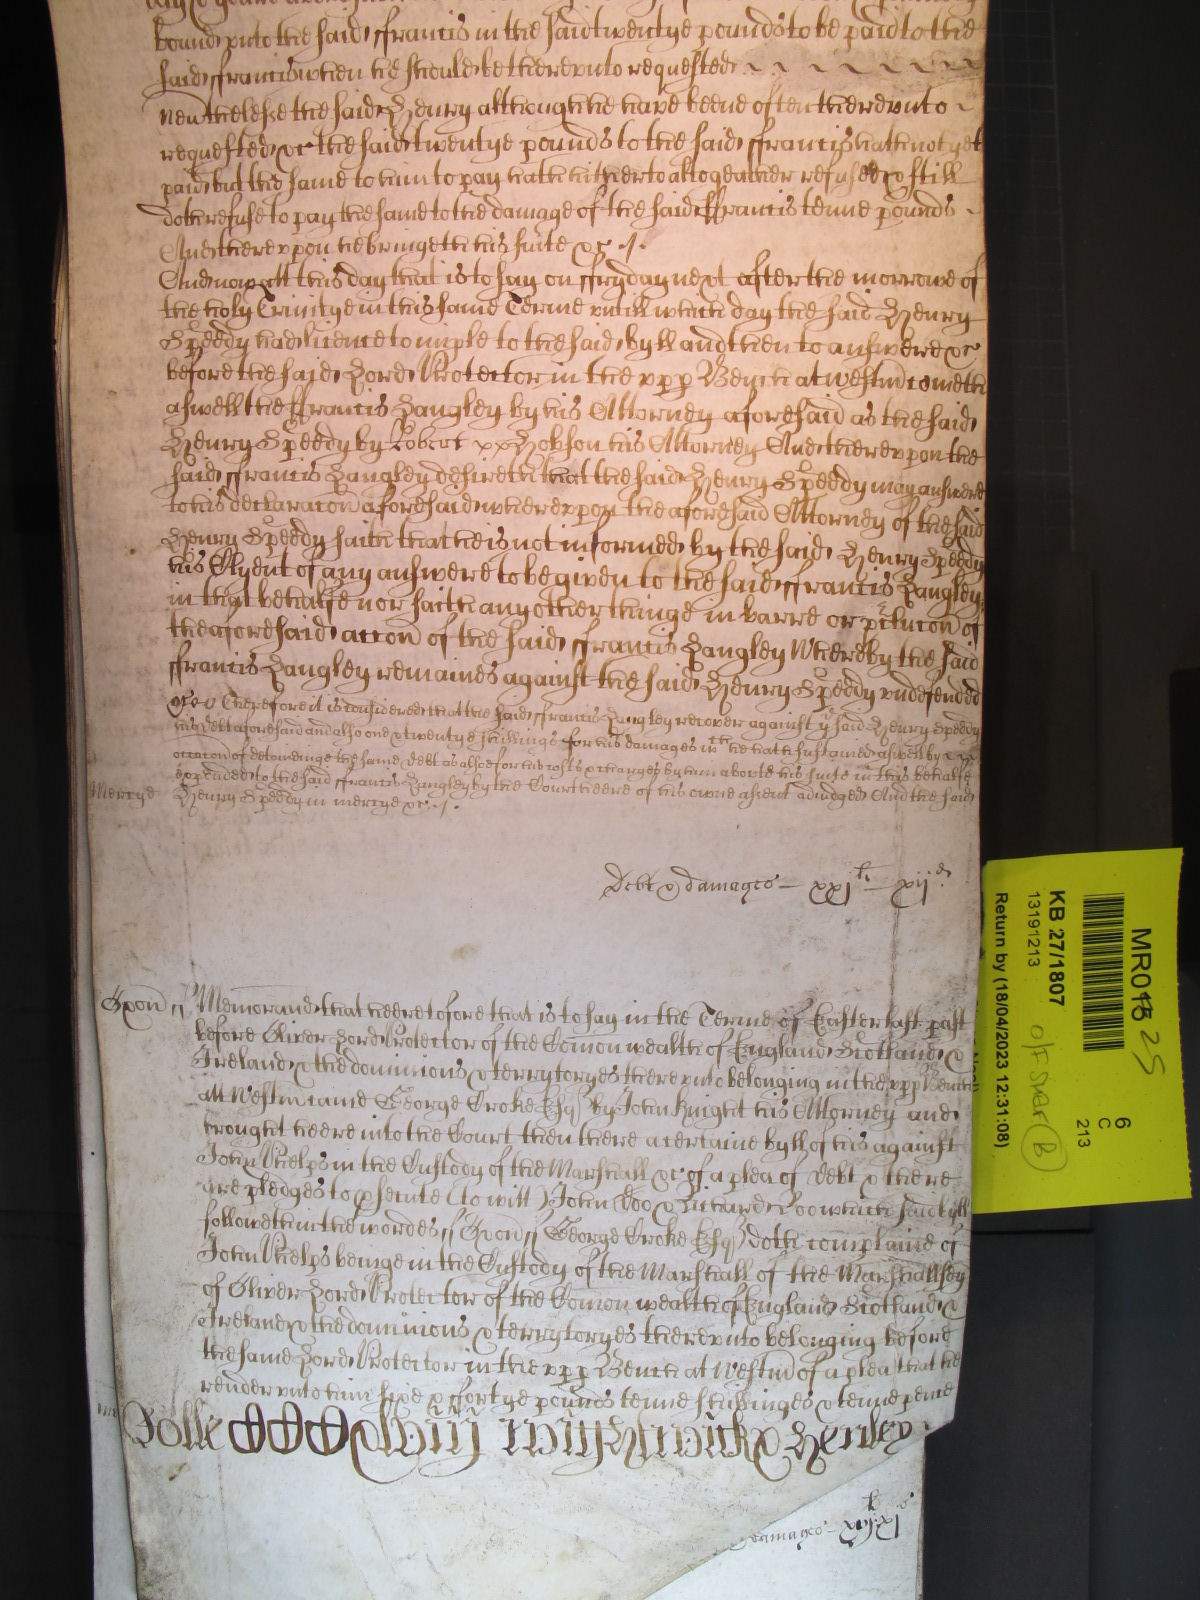 bound unto the said ffrancis in the said twentye pounds to be paid to the
said ffrancis when he should be thereunto requested
Nevthelesse the said Henry although he have beene often thereunto
requested &c the said twentye pounds to the said ffrancis hath not yet
paid but the same to him to pay hath hitherto altogeather refused & still
doth refuse to pay the same to the damage of the said ffrancis tenne pounds
And thereupon he bringeth his suite &c
And now att this day that is to say on ffryday next after the morrowe of
the holy Trinitye in this same Terme untill which day the said Henry
Speddy had licence to imple to the said byll and then to answere &c
before the said Lord Protector in the upp Bench at Westm cometh
aswell the ffrancis Langley by his Attorney aforesaid as the said
Henry Speddy by Robert Hobson his Attorney And thereupon the
said ffrancis Langley desireth that the said Henry Speddy may answere
to his declaracon aforesaid whereupon the aforesaid Attorney of the said
Henry Speddy saith that he is not informed by the said Henry Speddy
his Clyent of any answere to be given to the said ffrancis Langley
in that behalfe nor saith any other thinge in barre or of
the aforesaid accon of the said ffrancis Langley Whereby the said
ffrancis Langley remaines against the said Henry Speddy undefended
&c Therefore it is considered that the said ffrancis Langley recover against ye said Henry Speddy
his debt aforesaid and also one & twentye shillings for his damages wch he hath sustained aswell by
occacon of deteininge the same debt as also for his costs & charges by him aboute his suite in this behalfe
expended to the said ffrancis Langley by the Court heere of his owne assent adiudged And the said
Mercye Henry Speddy in mercye &c
Debt & damages – xxjli – xijd
Oxon ss Memorand that heeretofore that is to say in the Terme of Easter last past
before Oliver Lord Protector of the Comonwealth of England Scotland &
Ireland & the dominions & terrytoryes thereunto belonging in the upp Bench
att Westm came George Croke Esq by John Knight his Attorney and
brought heere into the Court then there a certaine byll of his against
John Phelps in the Custody of the Marshall &c of a plea of debt & there
are pledges to psecute (to witt) John Doo & Richard Roo which said byll
followeth in these wordes ss Oxon ss George Croke Esq doth complaine of
John Phelps beinge in the Custody of the Marshall of the Marshallsey
of Oliver Lord Protector of the Comonwealth of England Scotland &
Ireland & the dominions & terrytoryes thereunto belonging before
the same Lord Protector in the upp Bench at Westm of a plea that he
render unto him sixe & ffortye pounds tenne shillinges & tenne pence
Rolle Henley
damages – xvjli xjs
MR018 25
KB 27/1807
13191213 o/f Stver (B)
Return by (18/04/2023 12:31:08)
6
C
213